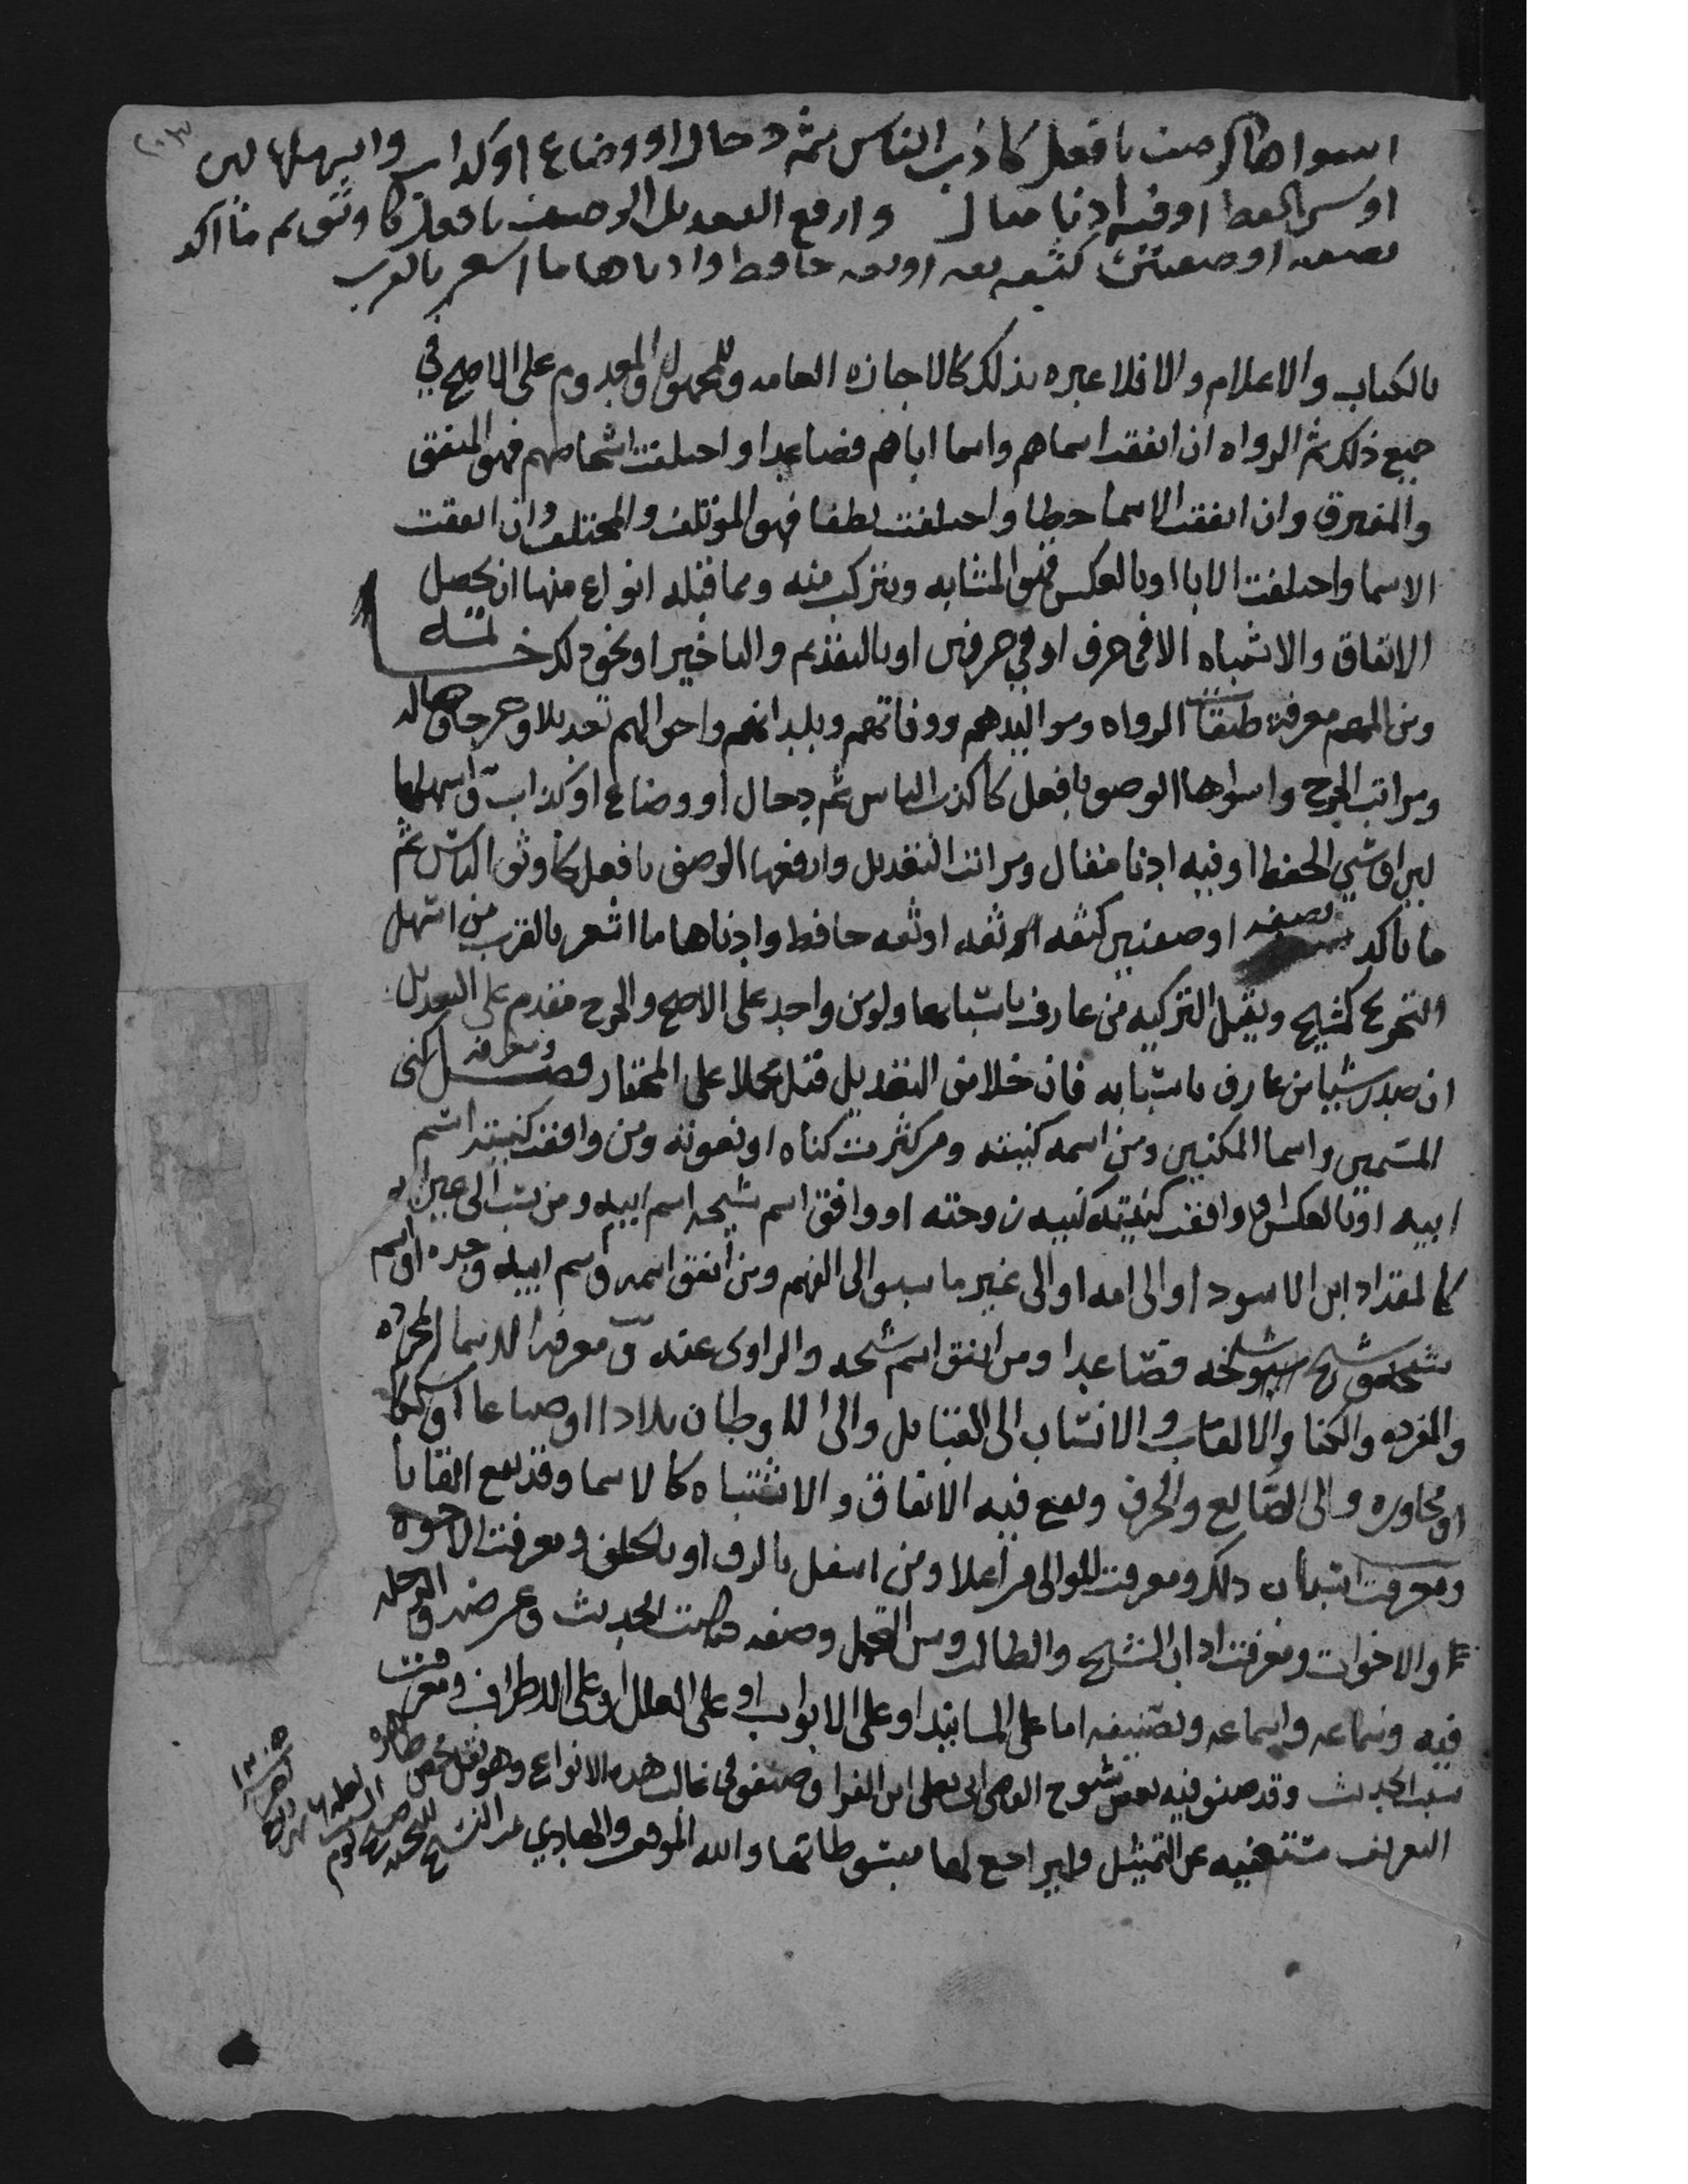 اسواها الوصف بافعل كاذب الناس ثم دجال او وضاع او كذاب واسهلها لين
او سي الحفظ او فيه ادنا مقال وارفع التعديل الوصف بافعل كاوثق ثم ما اكد
بصفه او صفتين كثقه ثقه او ثقه حافظ وادناها ما اشعر بالقرب
بالكتاب والاعلام والا فلا عبره بذلك كالاجازه العامه وللمجهول والمعدوم على الاصح في
جميع ذلك ثم الرواه ان اتفقت اسماهم واسما اباهم فصاعدا واختلفت اشخاصهم فهو المتفق
والمفترق وان اتفقت الاسما خطا واختلفت لطفا فهو الموتلف والمختلف وان اتفقت
الاسما واختلفت الابا او بالعكس فهو المتشابه ويتركب منه ومما قبله انواع منها ان يحصل
الاتفاق والاشتباه الا في حرف او في حرفين او بالتقديم والتاخير او نحو ذلك خاتمه
ومن المهم معرفة طبقات الرواه ومواليدهم ووفاتهم وبلدانهم واحوالهم تعديلا وجرحا وجهاله
ومراتب الجرح واسواها الوصف بافعل كاكذب الناس ثم دجال او وضاع او كذاب واسهلها
لين او سي الحفظ او فيه ادنا مقال ومراتب التعديل وارفعها الوصف بافعل كاوثق الناس ثم
ما تاكد بصفه او صفتين كثقه ثقه او ثقه حافظ وادناها ما اشعر بالقرب من اسهل
التجريح كشيخ وتقبل التزكيه من عارف باسبابها ولو من واحد على الاصح والجرح مقدم على التعديل
ان صدر مبينا من عارف باسبابه فان خلا من التعديل قبل مجملا على المختار فصل ومعرفه كنى
المسمين واسما المكنيين ومن اسمه كنيته ومن كثرت كناه او نعوته ومن وافقت كنيته اسم
ابيه او بالعكس او وافقت كنيته كنيه زوجته او وافق اسم شيخه اسم ابيه ومن نسب الى غير ابيه
كالمقداد ابن الاسود او الى امه او الى غير ما يسبق الى الفهم ومن اتفق اسمه واسم ابيه وجده او اسم
شيخه وشيخ شيخه فصاعدا ومن اتفق اسم شيخه والراوى عنه ومعرفه الاسما المجرده
والمفرده والكنا والالقاب والانساب الى القبايل والى الاوطان بلادا او ضياعا او سككا
او مجاوره والى الصنايع والحرف ويقع فيه الاتفاق والاشتباه كالاسما وقد يقع القابا
ومعرفت اسباب ذلك ومعرفت الموالى من اعلا ومن اسفل بالرق او بالحلف ومعرفت الاخوه
والاخوات ومعرفت اداب الشيخ والطالب وسن التحمل وصفه كتابت الحديث وعرضه والرحله
فيه وسماعه واسماعه وتصنيفه اما على المسانيد او على الابواب او على العلل او على الاطراف ومعرفت
سبب الحديث وقد صنف فيه بعض شيوخ القاضى ابى يعلى ابن الفرا وصنفو في غالب هذه الانواع وهو نقل محض ظاهره
التعريف مستغنيه عن التمثيل فليراجع لها مبسوطاتها والله الموفق والهادي